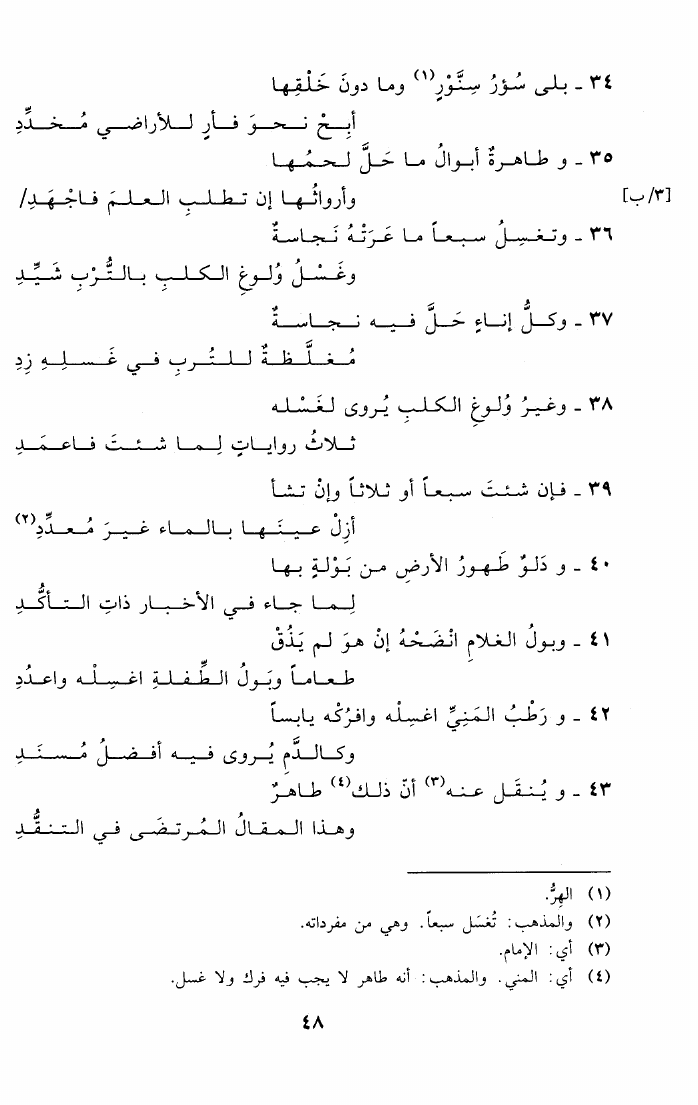 ٣٤ - بلى سُؤرُ سِنَّوْرٍ(١) وما دونَ خَلْقِها
أَبِحْ نحوَ فأرٍ للأراضي مُخدِّدِ
٣٥ - و طاهرةٌ أبوالُ ما حَلَّ لحمُها
وأرواثُها إن تطلبِ العلمَ فاجْهَدِ/ [٣/ب]
٣٦ - وتغسِلُ سبعاً ما عَرَتْهُ نَجاسةٌ
وغَسْلُ وُلوغِ الكلبِ بالتُّرْبِ شَيِّدِ
٣٧ - وكلُّ إناءٍ حَلَّ فيه نجاسةٌ
مُغلَّظةٌ للتُربِ في غَسلِهِ زِدِ
٣٨ - وغيرُ وُلوغِ الكلبِ يُروى لغَسْله
ثلاثُ رواياتٍ لِما شئتَ فاعمَدِ
٣٩ - فإن شئتَ سبعاً أو ثلاثاً وإنْ تشأ
أزِلْ عينَها بالماء غيرَ مُعدِّدِ(٢)
٤٠ - و دَلوٌ طَهورُ الأرضِ من بَوْلةٍ بها
لِما جاء في الأخبار ذاتِ التأكُّدِ
٤١ - وبولُ الغلامِ انْضَحْهُ إنْ هوَ لم يَذُقْ
طعاماً وبَولُ الطِّفلةِ اغسِلْه واعدُدِ
٤٢ - و رَطْبُ المَنِيِّ اغسِلْه وافرُكْه يابساً
وكالدَّمِ يُروى فيه أفضلُ مُسنَدِ
٤٣ - و يُنقَل عنه(٣) أنّ ذلك(٤) طاهرٌ
وهذا المقالُ المُرتضَى في التنقُّدِ
(١) الهِرُّ.
(٢) والمذهب: تُغسَل سبعاً. وهي من مفرداته.
(٣) أي: الإمام.
(٤) أي: المني. والمذهب: أنه طاهر لا يجب فيه فرك ولا غسل.
٤٨